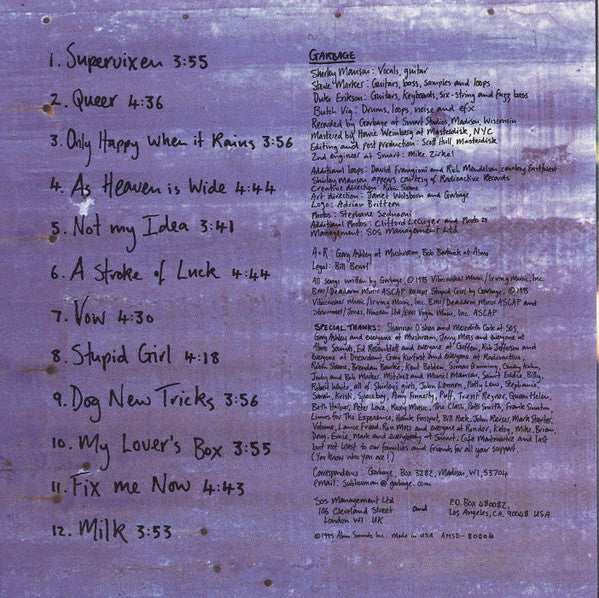 1. Supervixen 3:55
2. Queer 4:36
3. Only Happy When it Rains 3:56
4. As Heaven is Wide 4:44
5. Not my Idea 3:41
6. A Stroke of Luck 4:44
7. Vow 4:30
8. Stupid Girl 4:18
9. Dog New Tricks 3:56
10. My Lover's Box 3:55
11. Fix me Now 4:43
12. Milk 3:53
GARBAGE
Shirley Manson: Vocals, guitar
Steve Marker: Guitars, bass, samples and loops
Duke Erikson: Guitars, Keyboards, six-string and fuzz bass
Butch Vig: Drums, loops, noise and efx
Recorded by Garbage at Smart Studios, Madison, Wisconsin
Mastered by Howie Weinberg at Masterdisk, NYC
Editing and post production: Scott Hull, Masterdisk
2nd engineer at Smart: Mike Zirkel
Additional loops: David Frangioni and Rich Mendelson, courtesy
Shirley Manson appears courtesy of Radioactive Records
Creative direction: Robin Sloane
Art direction: Janet Wolsborn and Garbage
Logo: Adrian Britteon
Photos: Stephane Sednaoui
Additional Photos: Clifford and
Management: SOS Management Ltd
A+R: Gary Ashley at Mushroom, Bob Bortnick at Almo
Legal: Bill Berrol
All songs written by Garbage, © 1995 Vibecrusher Music/Irving Music, Inc.
BMI/Deadarm Music ASCAP except Stupid Girl by Garbage, © 1995
Vibecrusher Music/Irving Music, Inc. BMI/Deadarm Music ASCAP and
Strummer/Jones, Nineden Ltd/EMI Virgin Music Inc. ASCAP
SPECIAL THANKS: Shannon O'Shea and Meredith Cork at SOS,
Gary Ashley and everyone at Mushroom, Jerry Moss and everyone at
Almo Sounds, Ed Rosenblatt and everyone at Geffen, Rob Jefferson and
everyone at Discordant, Gary Kurfirst and everyone at Radioactive,
Robin Sloane, Brendan Bourke, Kent Belden, Simon Gunning, Corey
Jody and Bob Marker, Mitchell and Muriel Manson, Saint Eddie, Billy,
Robert White, all of Shirley's girls, John Lennon, Patty Lew, Stephanie,
Sarah, Krish, Spaceboy, Amy Finnerty, Puff, Trent Reznor, Queen Helen,
Beth Halper, Peter Love, Roxy Music, The Clash, Patti Smith, Frank Sinatra
Linus for the Experience, Bill Rock, John Reiser, Mark Startzer,
Volume, Lance Freed, Ron Moss and everyone at Rondor, Kelsy, Mike, Brian,
Doug, Ernie, Mark and everybody at Smart, Cafe Montmartre and last
but not least to our families and friends for all your support.
(You know who you are!)
Correspondence: Garbage, Box 3282, Madison, WI, 53704
email: subhuman@garbage.com
SOS Management Ltd
106 Cleveland Street
London W1 UK
and
P.O. Box 480082,
Los Angeles, CA. 90048 USA
©1995 Almo Sounds Inc. Made in USA AMSD-80004